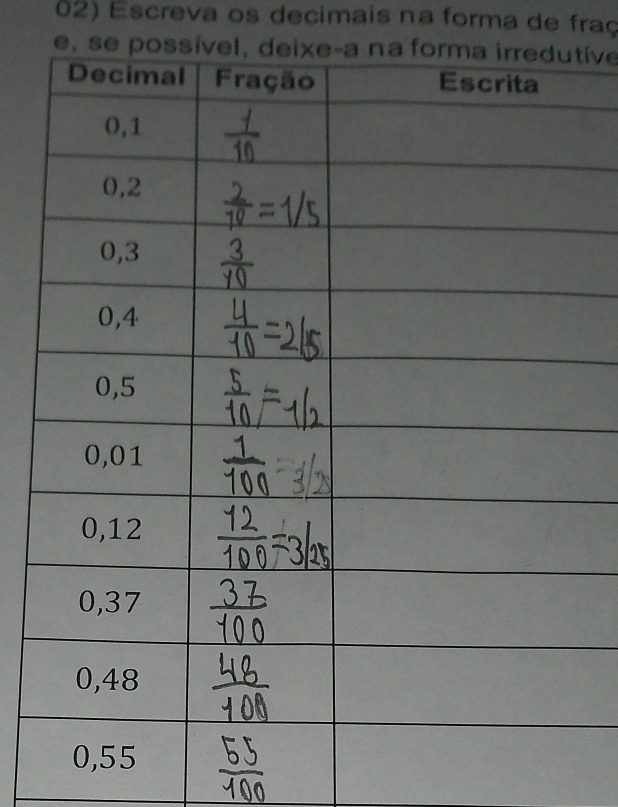 02) Escreva os decimais na forma de fraç
e, se possível, deixe-a na forma irredutíve
Decimal Fração Escrita
0,1 1/10
0,2 2/10 = 1/5
0,3 3/10
0,4 4/10 = 2/5
0,5 5/10 = 1/2
0,01 1/100
0,12 12/100 = 3/25
0,37 37/100
0,48 48/100
0,55 55/100